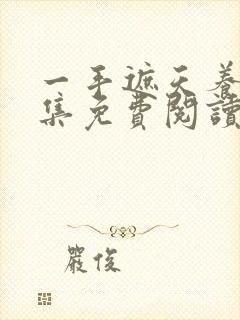 一手遮天養
集免費閱讀
嚴俊